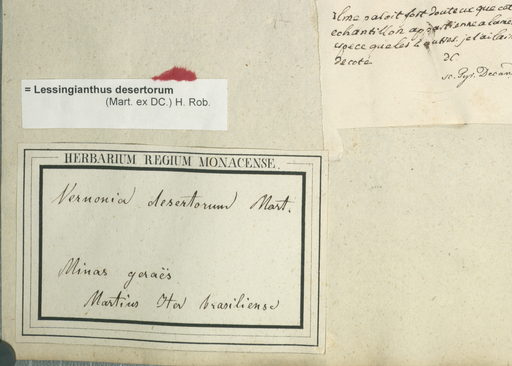 Il me paroit fort douteux que cet
echantillon appartienne a la même
espece que les autres. je l'ai laissé
de coté
DC
= Lessingianthus desertorum
(Mart. ex DC.) H. Rob.
HERBARIUM REGIUM MONACENSE.
Vernonia desertorum Mart.
Minas geraës
Martius Iter brasiliense